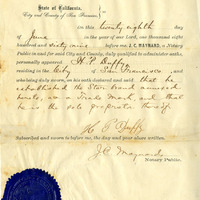 State of California,
City and County of San Francisco, } ss
On this twenty eighth day
of June in the year of our Lord, one thousand eight
hundred and sixty nine before me J. C. MAYNARD, a Notary
Public in and for said City and County, duly qualified to administer oaths,
personally appeared H. P. Duffy
residing in the City of San Francisco, and
who being duly sworn, on his oath declared and said that he
established the Star brand annexed
hereto, as a Trade Mark, and that he
is the sole proprietor thereof.
H. P. Duffy
Subscribed and sworn to before me, the day and year above written.
J. C. Maynard
Notary Public.